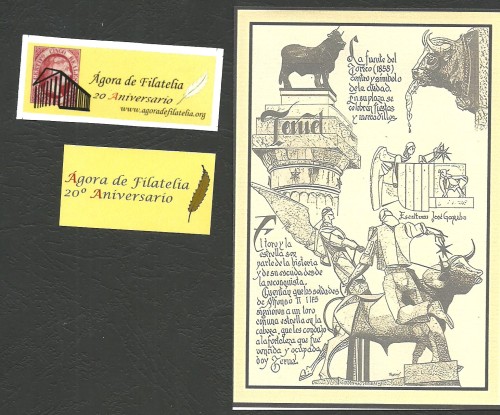 Ágora de Filatelia
20 Aniversario
www.agoradefilatelia.org
Ágora de Filatelia
20º Aniversario
La fuente del
Torico (1858)
centro y símbolo
de la ciudad.
En su plaza se
celebran fiestas
y mercadillos
Teruel
Escultura José Gonzalvo
El toro y la
estrella son
parte de la historia
y de su escudo desde
la reconquista.
Cuentan que los soldados
de Alfonso II
siguieron a un toro
con una estrella en la
cabeza, que les condujo
a la fortaleza que fue
vencida y ocupada,
hoy Teruel